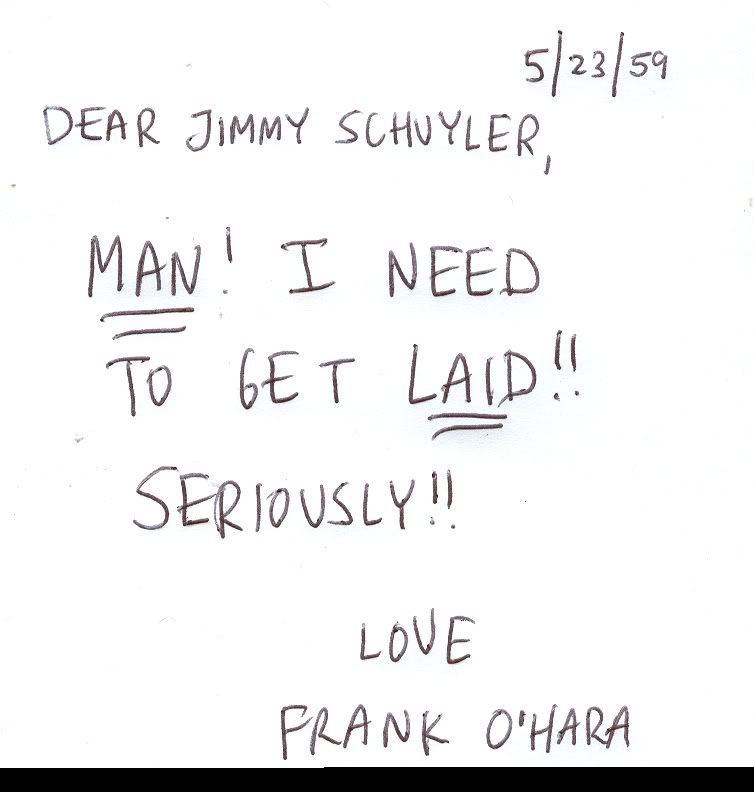 5/23/59
DEAR JIMMY SCHUYLER,
MAN! I NEED
TO GET LAID!!
SERIOUSLY!!
LOVE
FRANK O'HARA